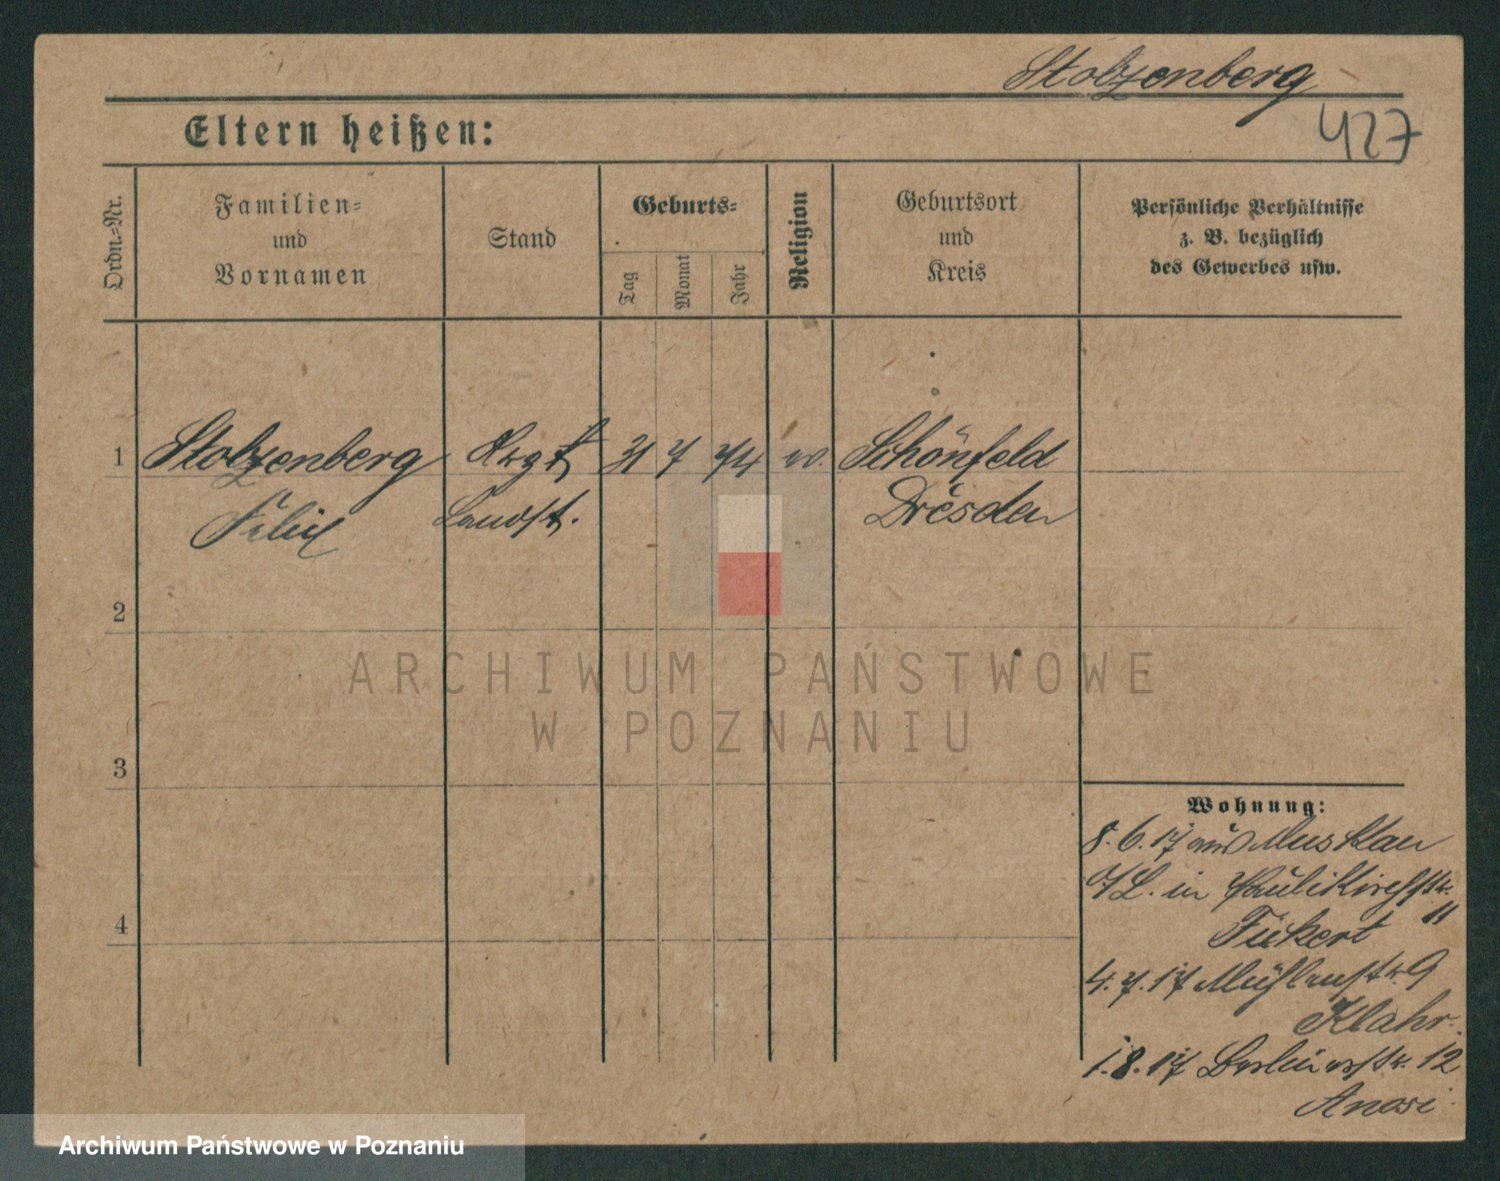 Stolzenberg
427
Eltern heißen:
Ordn.-Nr.
Familien-
und
Vornamen
Stand
Geburts-
Tag
Monat
Jahr
Religion
Geburtsort
und
Kreis
Persönliche Verhältnisse
z. B. bezüglich
des Gewerbes usw.
1 Stolzenberg 31 7 74 Schönfeld
Felix Landst. Dresden
2
3
4
Wohnung:
8.6.17 aus Muskau
O/L. in Paulikirchstr.
11
Fiekert
4.7.17 Mühlenstr 9
Klahr.
1.8.17 Berlinerstr. 12
ARCHIWUM PAŃSTWOWE
W POZNANIU
Archiwum Państwowe w Poznaniu